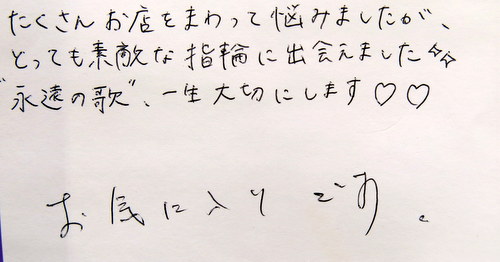 たくさんお店をまわって悩みましたが、
とっても素敵な指輪に出会えました☆☆
"永遠の歌"、一生大切にします♡♡
お気に入りです。